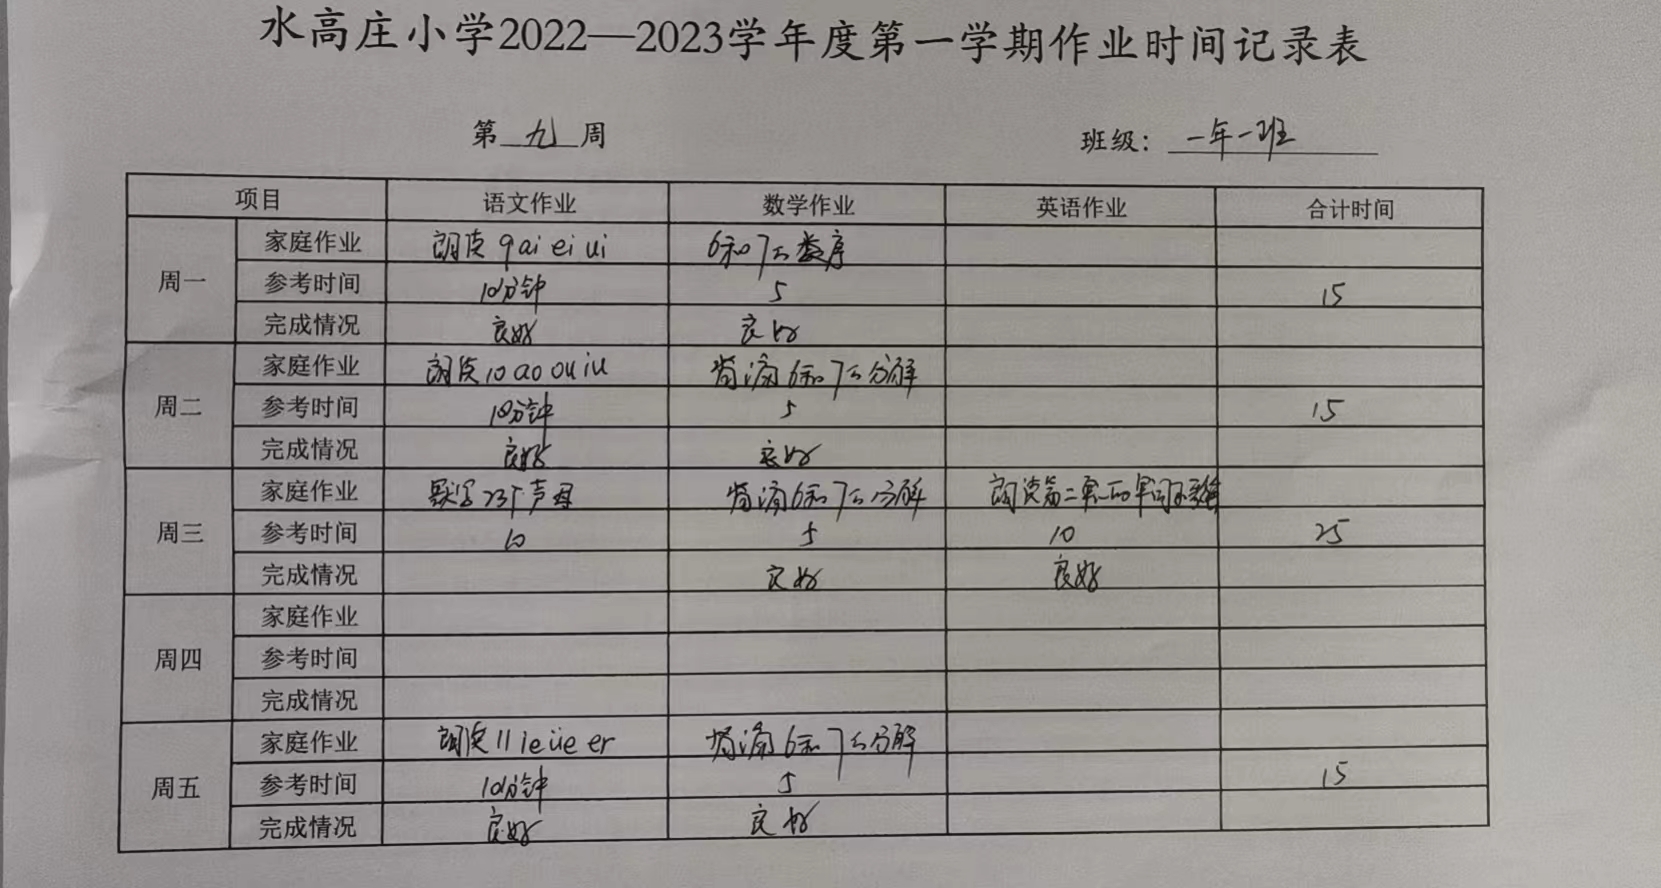 水高庄小学2022—2023学年度第一学期作业时间记录表
第 九 周 班级： 一年一班
项目 语文作业 数学作业 英语作业 合计时间
周一 家庭作业 朗读 9 ai ei ui 6和7的数序
参考时间 10分钟 5 15
完成情况 良好 良好
周二 家庭作业 朗读 10 ao ou iu 背诵6和7的分解
参考时间 10分钟 5 15
完成情况 良好 良好
周三 家庭作业 默写23个声母 背诵6和7的分解 朗读第二单元的单词
参考时间 10 5 10 25
完成情况 良好 良好
周四 家庭作业
参考时间
完成情况
周五 家庭作业 朗读 11 ie üe er 背诵6和7的分解
参考时间 10分钟 5 15
完成情况 良好 良好